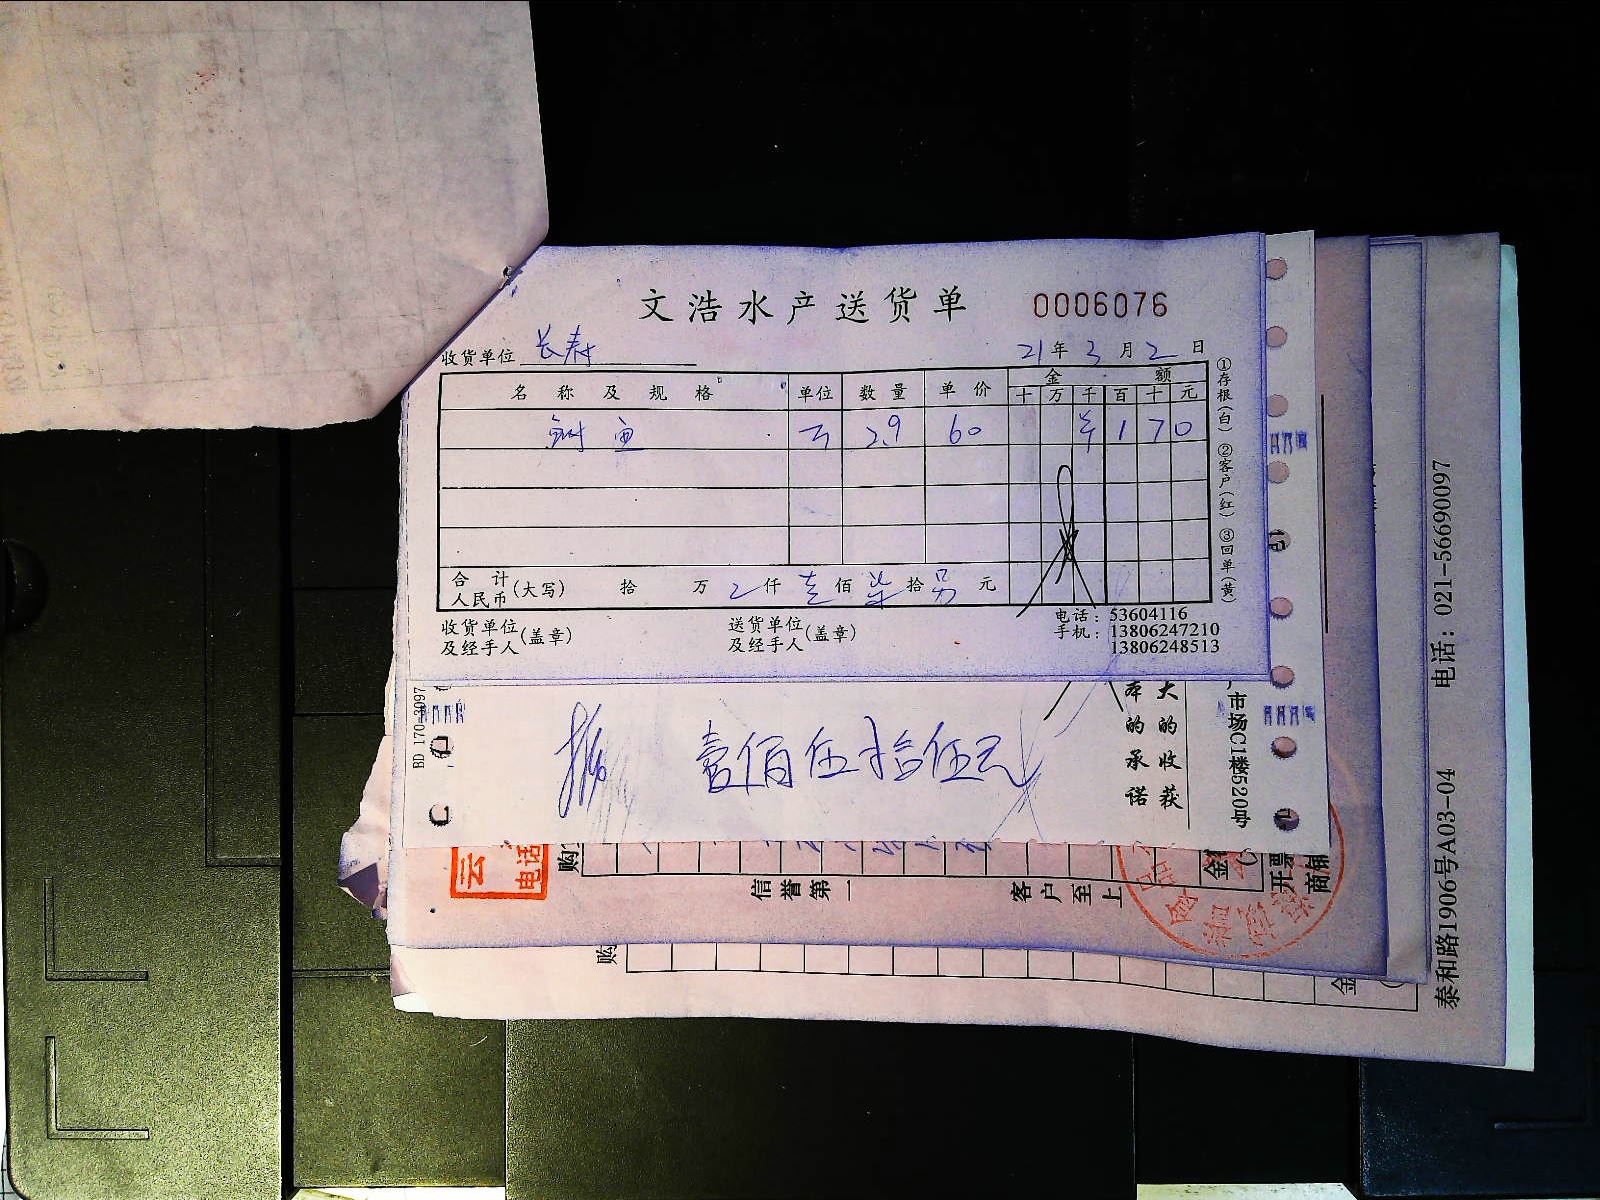 文浩水产送货单 0006076
收货单位 长寿 21年3月2日
名称及规格 单位 数量 单价 金额
十万千百十元
鱼 2.9 60 170
合计人民币(大写) 拾 万 仟 壹佰 柒拾 元
收货单位及经手人(盖章) 送货单位及经手人(盖章)
电话:53604116
手机:13806247210
13806248513
①存根(白) ②客户(红) ③回单(黄)
BD 170-3097
壹佰伍拾伍元
大的收获
市场C1楼520号
的承诺
云
电话
购
信誉第一
客户至上
金
开票
商铺
购
金
泰和路1906号A03-04 电话:021-56690097